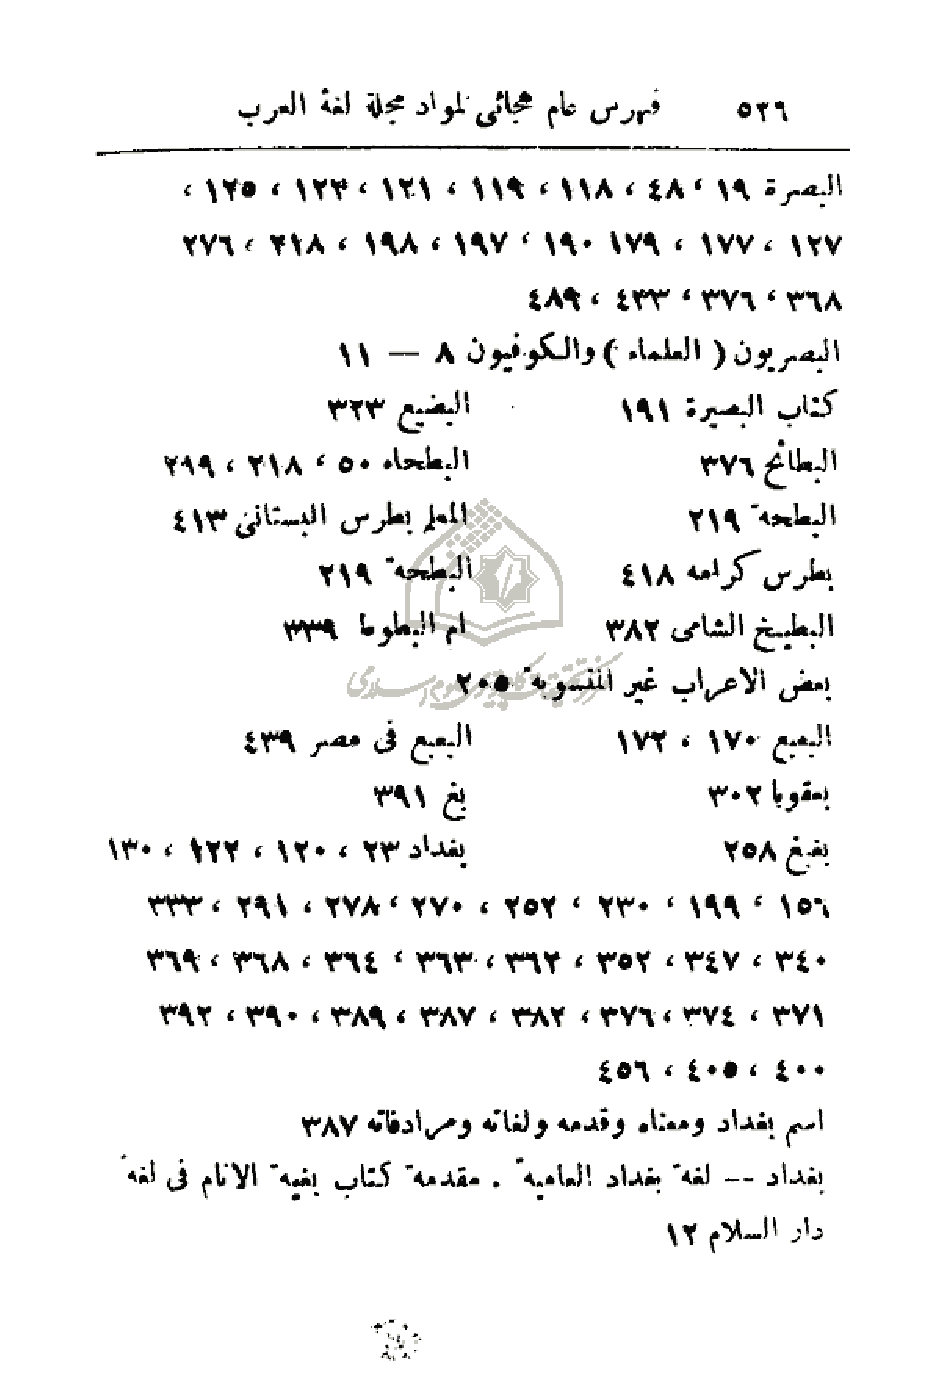 ٥٢٦ فهرس عام هجائي لمواد مجلة لغة العرب
البصرة ١٩ ، ٤٨ ، ١١٨ ، ١١٩ ، ١٢١ ، ١٢٣ ، ١٢٥ ،
١٢٧ ، ١٧٧ ، ١٧٩ ١٩٠ ، ١٩٧ ، ١٩٨ ، ٢١٨ ، ٢٧٦
٣٦٨ ، ٣٧٦ ، ٤٣٣ ، ٤٨٩
البصريون ( العلماء ) والكوفيون ٨ — ١١
كتاب البصيرة ١٩١ البضيع ٣٢٣
البطائح ٣٧٦ البطحاء ٥٠ ، ٢١٨ ، ٢٩٩
البطحة ٢١٩ المعلم بطرس البستاني ٤١٣
بطرس كرامه ٤١٨ البطحة ٢١٩
البطيخ الشامى ٣٨٢ ام البطوط ٣٣٩
بعض الاعراب غير المنسوبة ٢٠٥
البعبع ١٧٠ ، ١٧٢ البعبع فى مصر ٤٣٩
بعقوبا ٣٠٢ بغ ٣٩١
بغبغ ٢٥٨ بغداد ٢٣ ، ١٢٠ ، ١٢٢ ، ١٣٠
١٥٦ ، ١٩٩ ، ٢٣٠ ، ٢٥٢ ، ٢٧٠ ، ٢٧٨ ، ٢٩١ ، ٣٣٣
٣٤٠ ، ٣٤٧ ، ٣٥٢ ، ٣٦٢ ، ٣٦٣ ، ٣٦٤ ، ٣٦٨ ، ٣٦٩
٣٧١ ، ٣٧٤ ، ٣٧٦ ، ٣٨٢ ، ٣٨٧ ، ٣٨٩ ، ٣٩٠ ، ٣٩٢
٤٠٠ ، ٤٠٥ ، ٤٥٦
اسم بغداد ومعناه وقدمه ولغاته ومرادفاته ٣٨٧
بغداد -- لغة بغداد العامية . مقدمة كتاب بغية الانام فى لغة
دار السلام ١٢